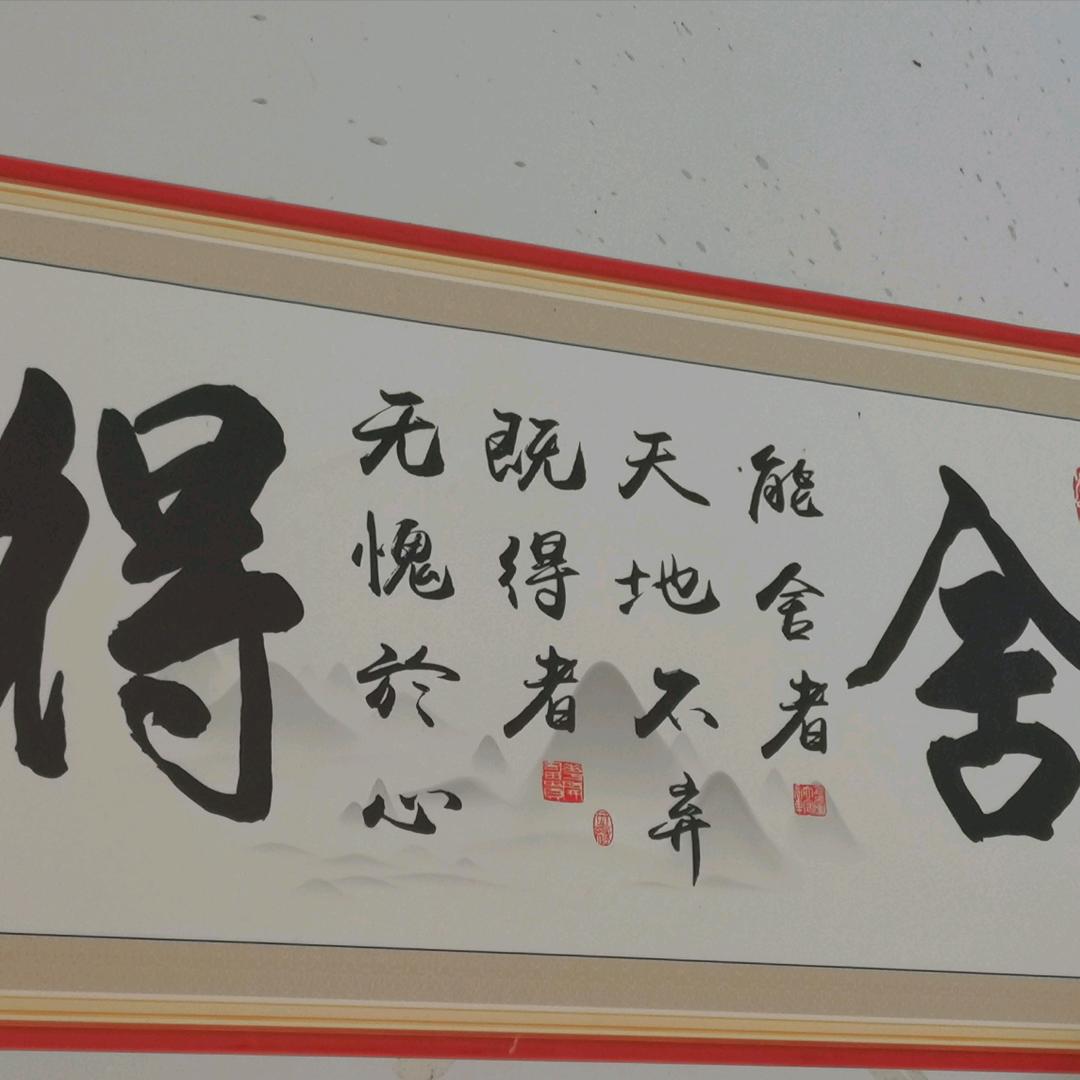 舍
能舍者
天地不弃
既得者
无愧於心
得